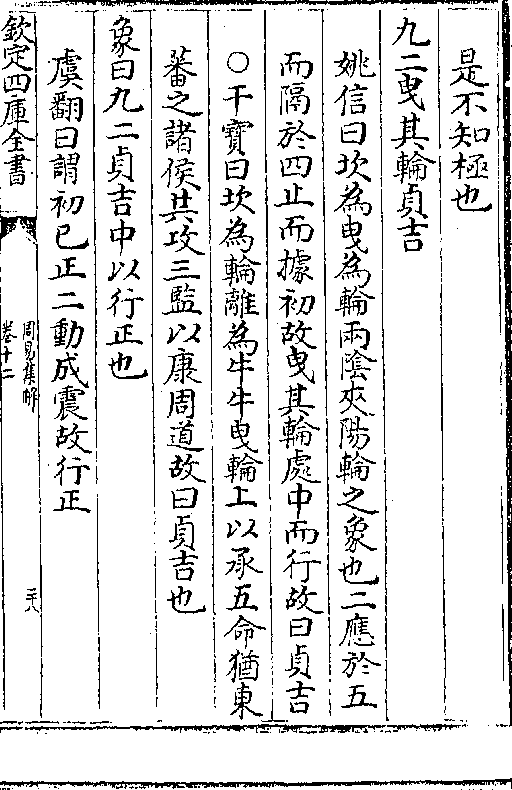 是不知極也
九二曳其輪貞吉
姚信曰坎為曳為輪兩陰夾陽輪之象也二應於五
而隔於四止而據初故曳其輪處中而行故曰貞吉
○干寶曰坎為輪離為牛牛曳輪上以承五命猶東
蕃之諸侯共攻三監以康周道故曰貞吉也
象曰九二貞吉中以行正也
虞翻曰謂初已正二動成震故行正
欽定四庫全書
周易集解
卷十二
二十八